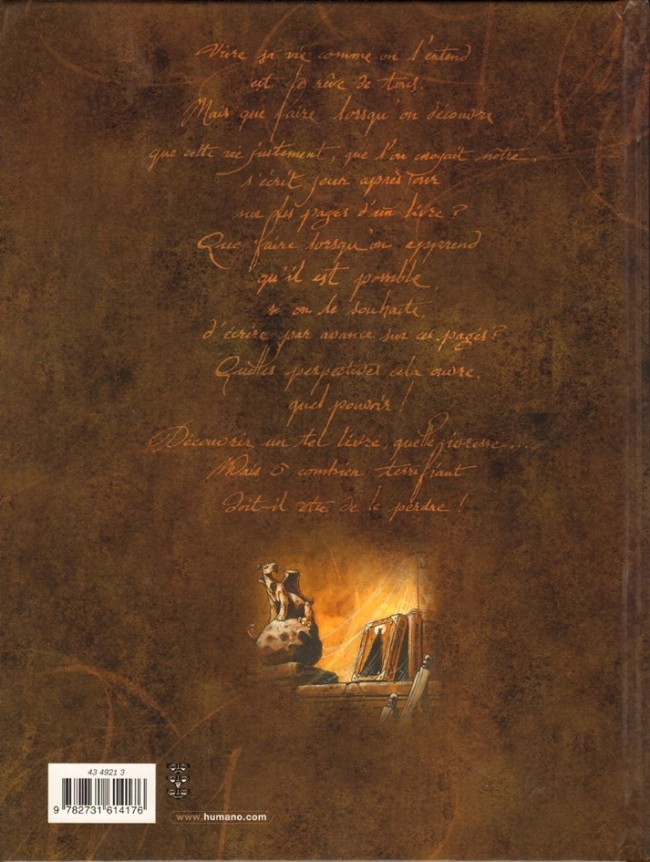 Vivre sa vie comme on l'entend
est le rêve de tous.
Mais que faire lorsqu'on découvre
que cette vie justement, que l'on croyait nôtre,
s'écrit jour après jour
sur des pages d'un livre ?
Que faire lorsqu'on apprend
qu'il est possible,
si on le souhaite,
d'écrire par avance sur ces pages ?
Quelles perspectives cela ouvre,
quel pouvoir !
Découvrir un tel livre, quelle ivresse...
Mais ô combien terrifiant
doit-il être de le perdre !
43 4921 3
9 782731 614176
www.humano.com